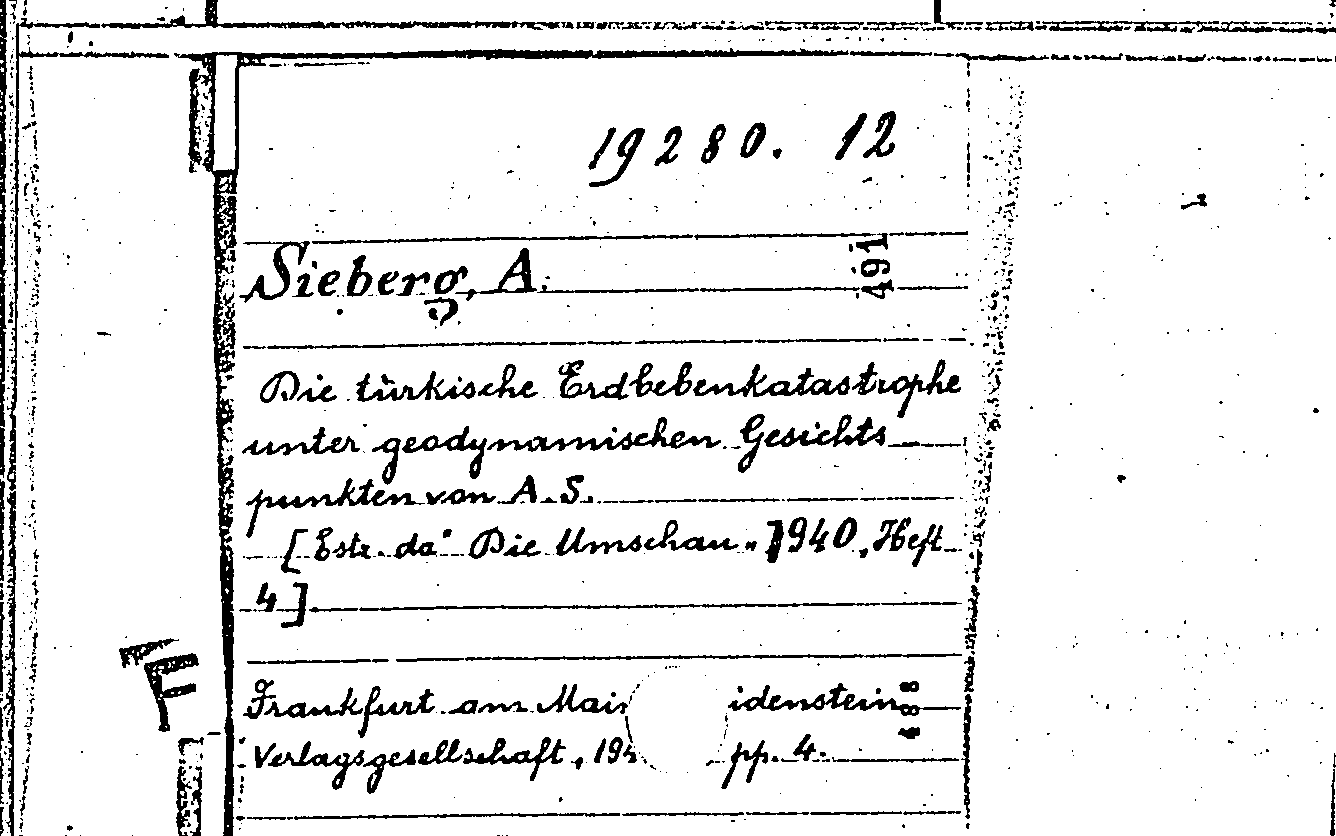 19280. 12
491
Sieberg, A.
Die türkische Erdbebenkatastrophe
unter geodynamischen Gesichts
punkten von A. S.
[Estr. da "Die Umschau" 1940, Heft
4]
Frankfurt am Main idenstein
488
Verlagsgesellschaft, 194 pp. 4.